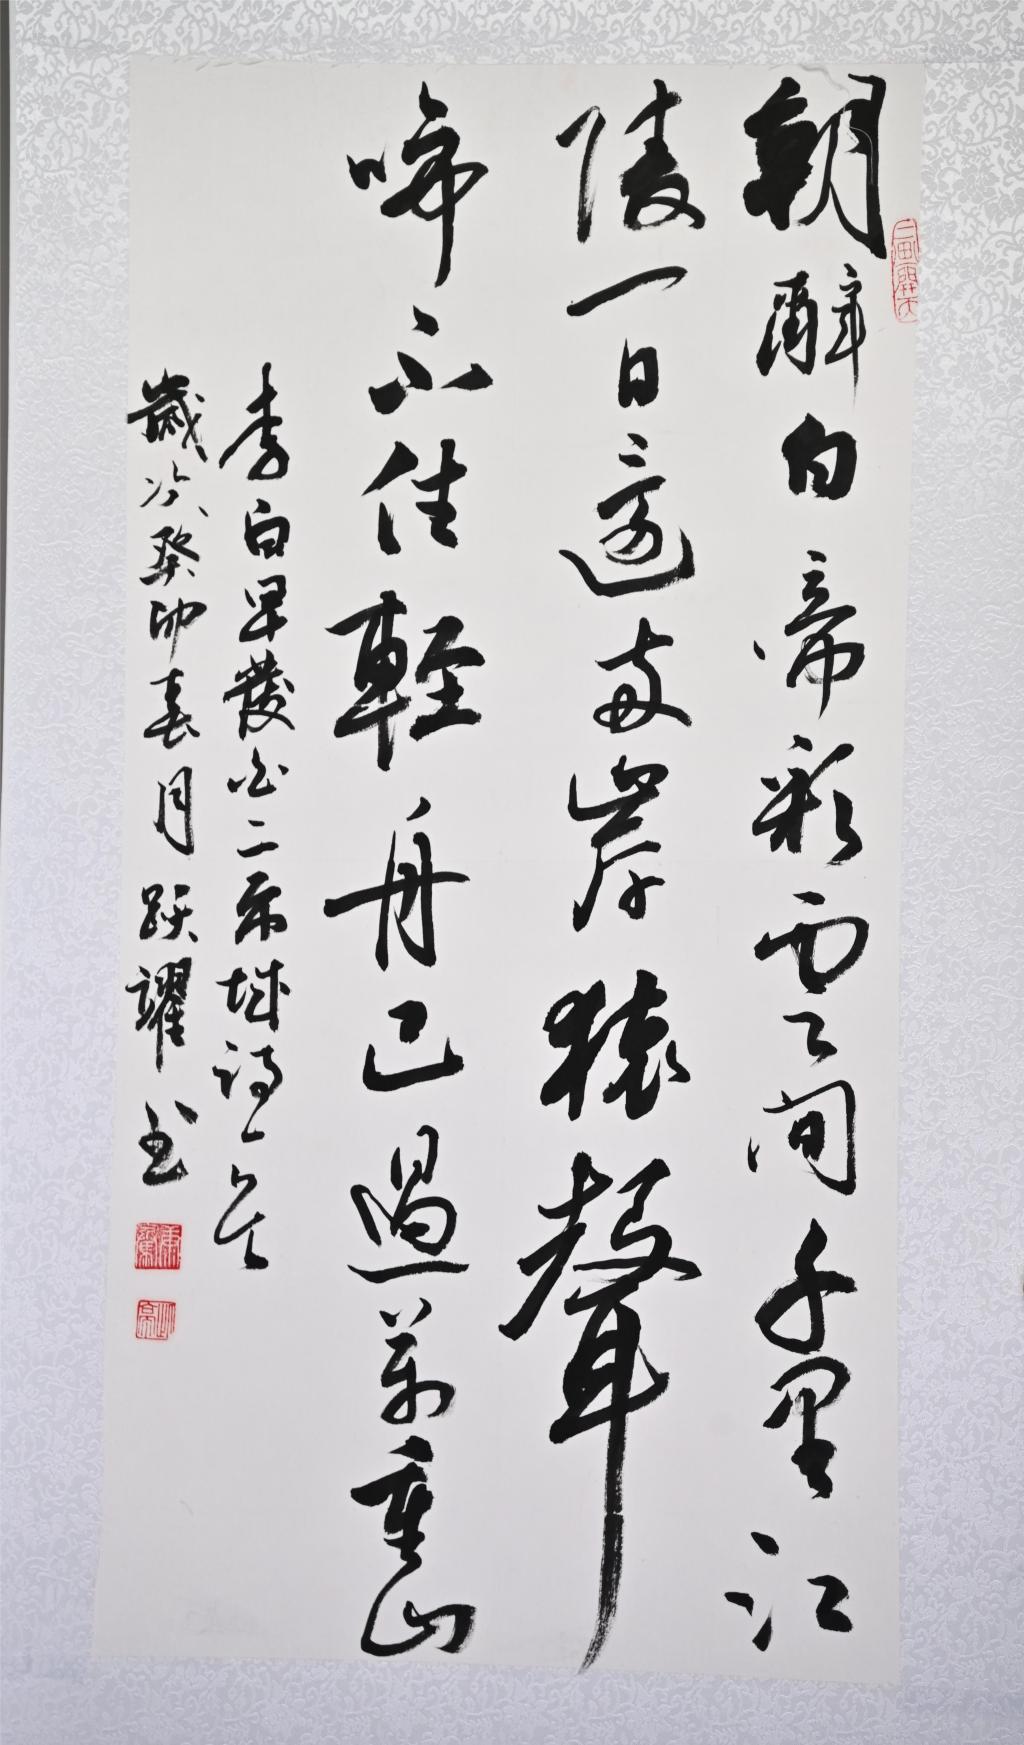 朝辭白帝彩雲間千里江
陵一日還兩岸猿聲
啼不住輕舟已過萬重山
李白早發白帝城詩一首
歲次癸卯春月躍耀书